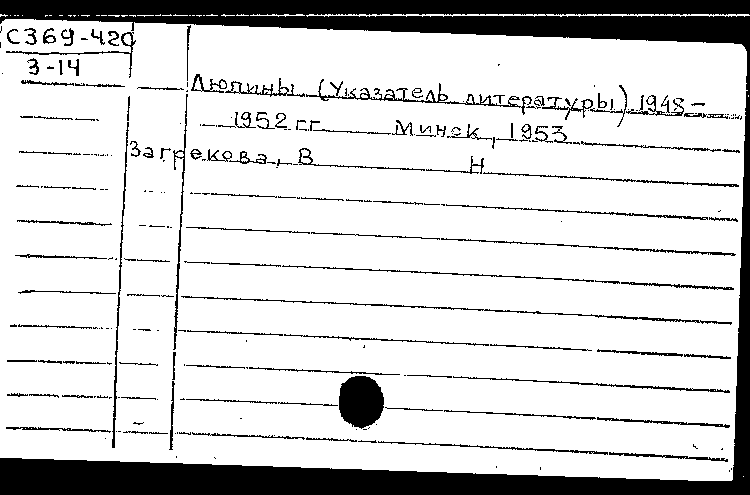 С369-420
3-14
Люпины (Указатель литературы) 1948-
1952 гг. Минск, 1953
Загрекова, В Н